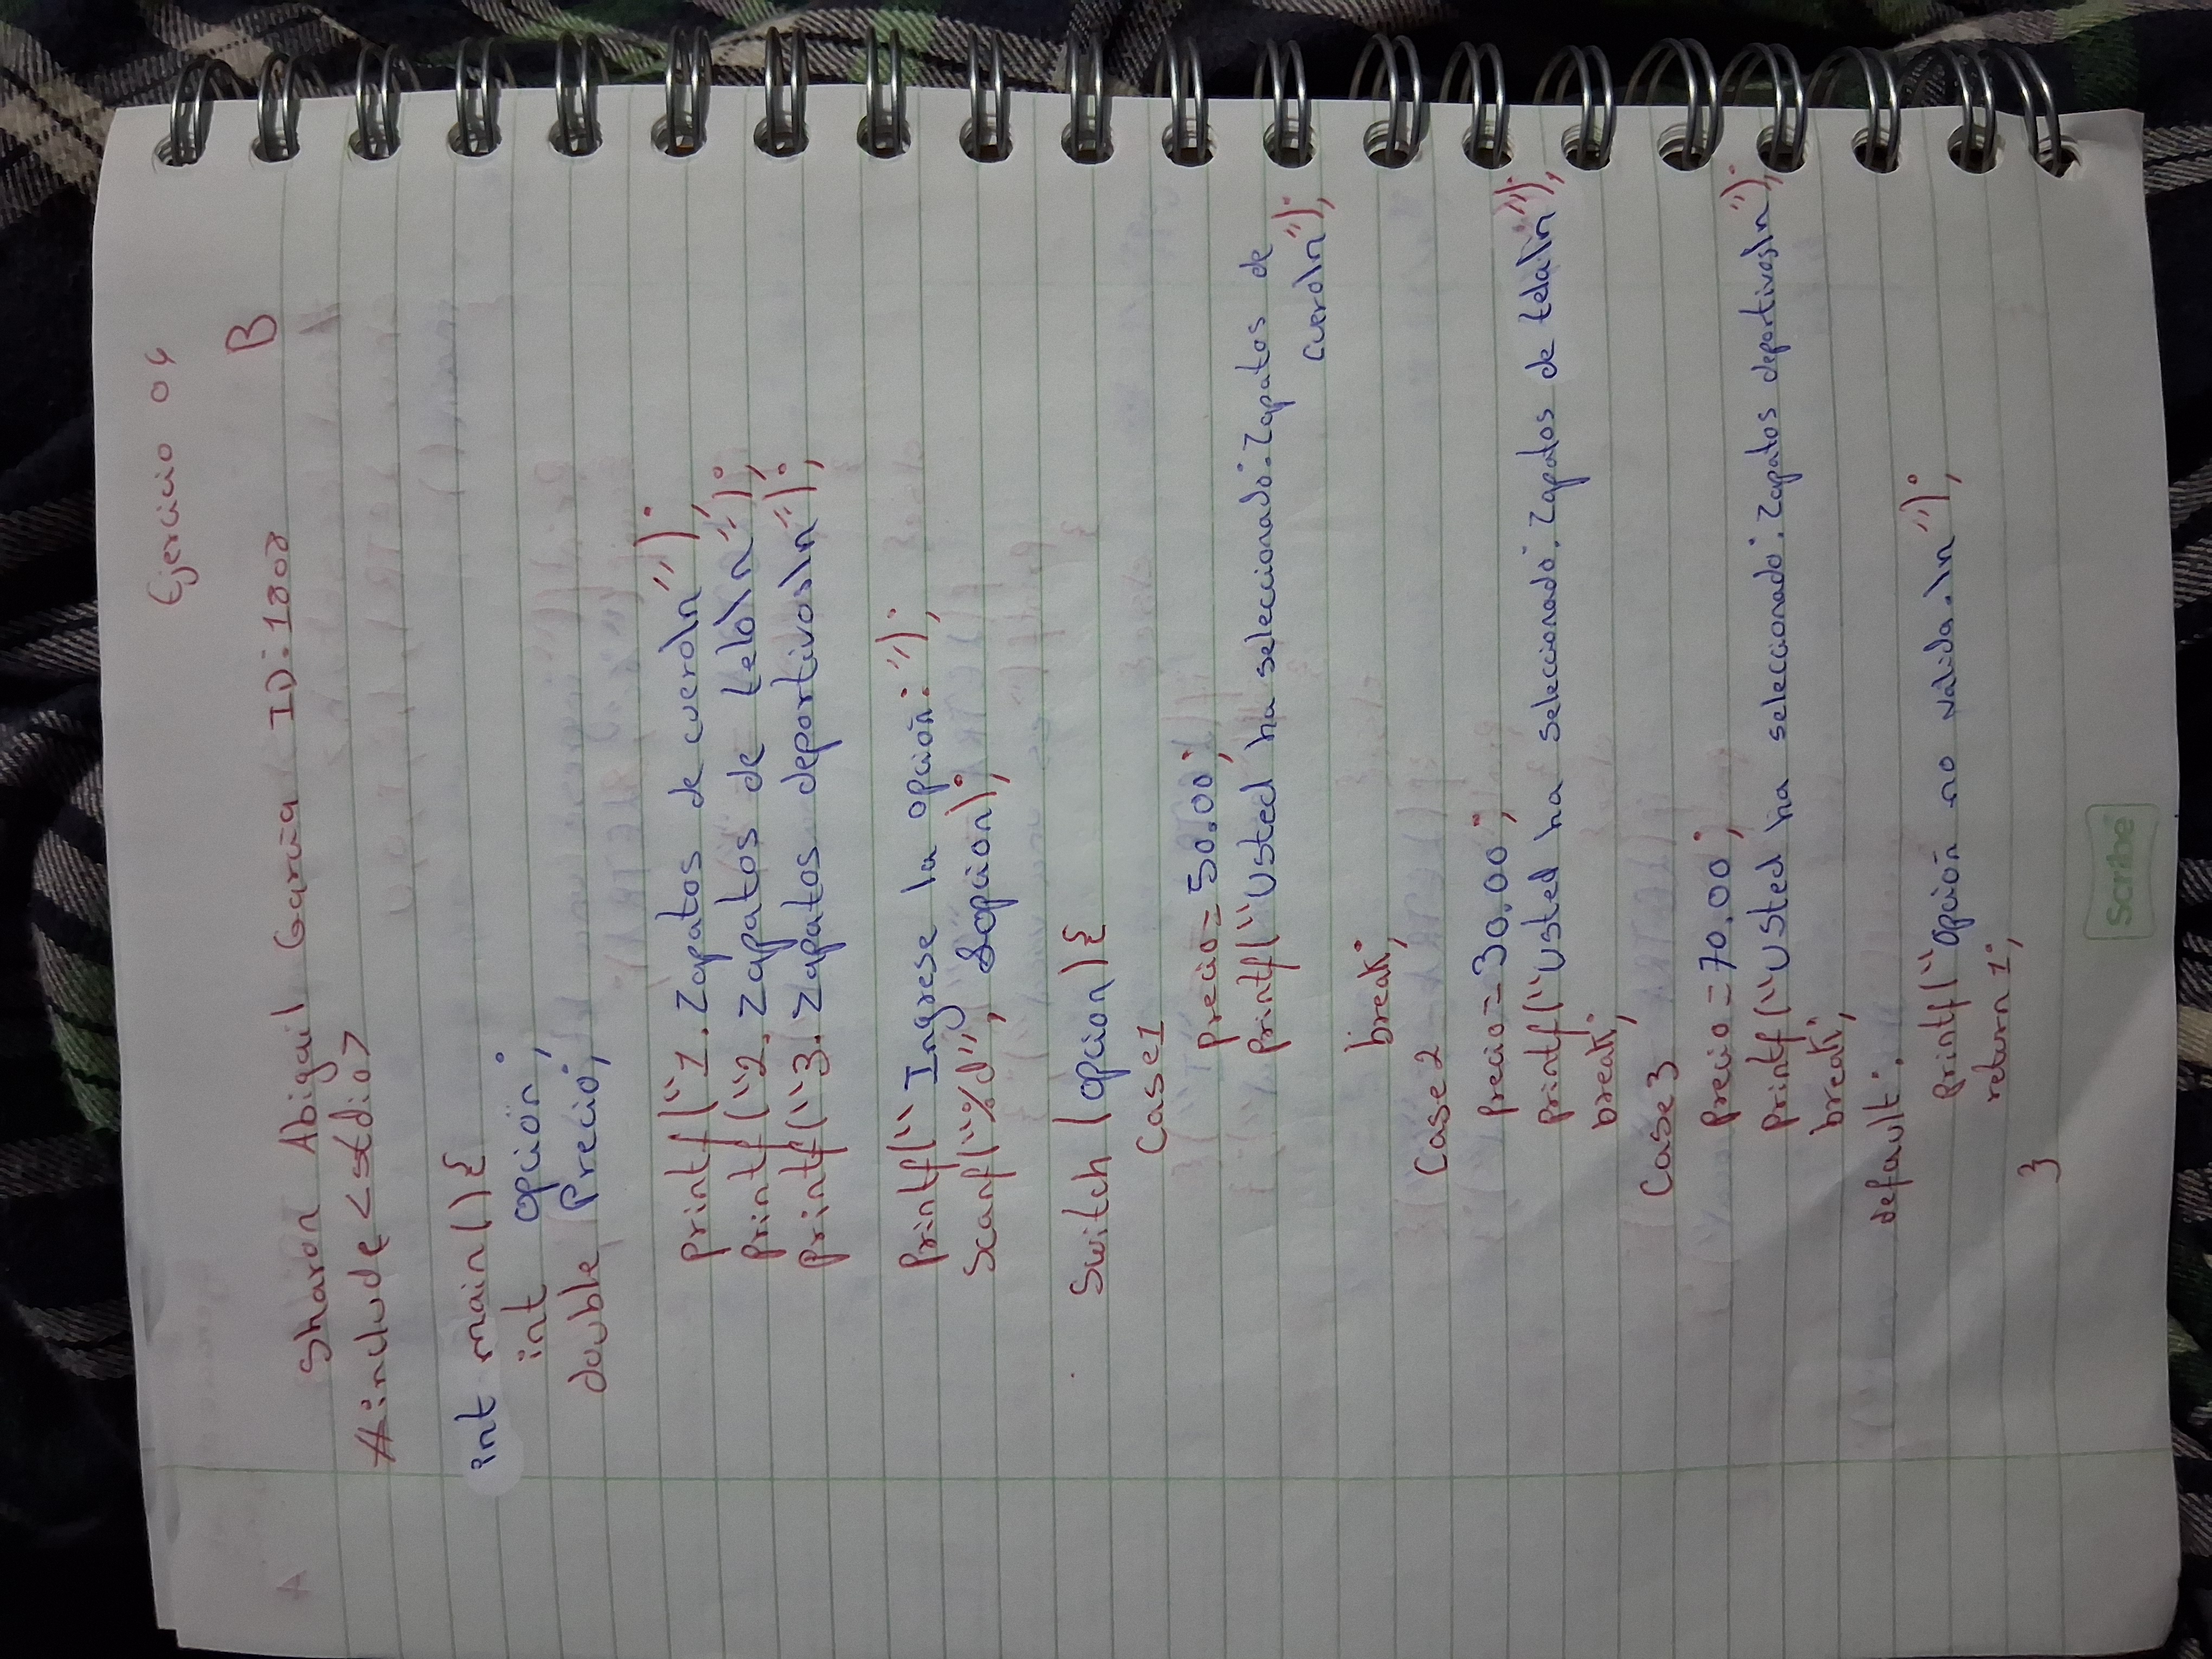 Ejercicio 04
B
Sharon Abigail Garcia ID: 1808
#include <stdio>
int main() {
int opción;
double Precio;
printf("1. Zapatos de cuero\n");
printf("2. Zapatos de tela\n");
printf("3. Zapatos deportivos\n");
printf("Ingrese la opción: ");
Scanf("%d", &opcion);
Switch (opcion) {
Case1
Precio=50.00;
printf("Usted ha seleccionado: Zapatos de
cuero\n");
break;
Case 2
precio=30.00;
printf("Usted ha seleccionado: Zapatos de tela\n");
break;
Case3
precio=70.00;
printf("Usted ha seleccionado: Zapatos deportivos\n");
break;
default:
printf("Opción no valida.\n");
return 1;
}
Scribe